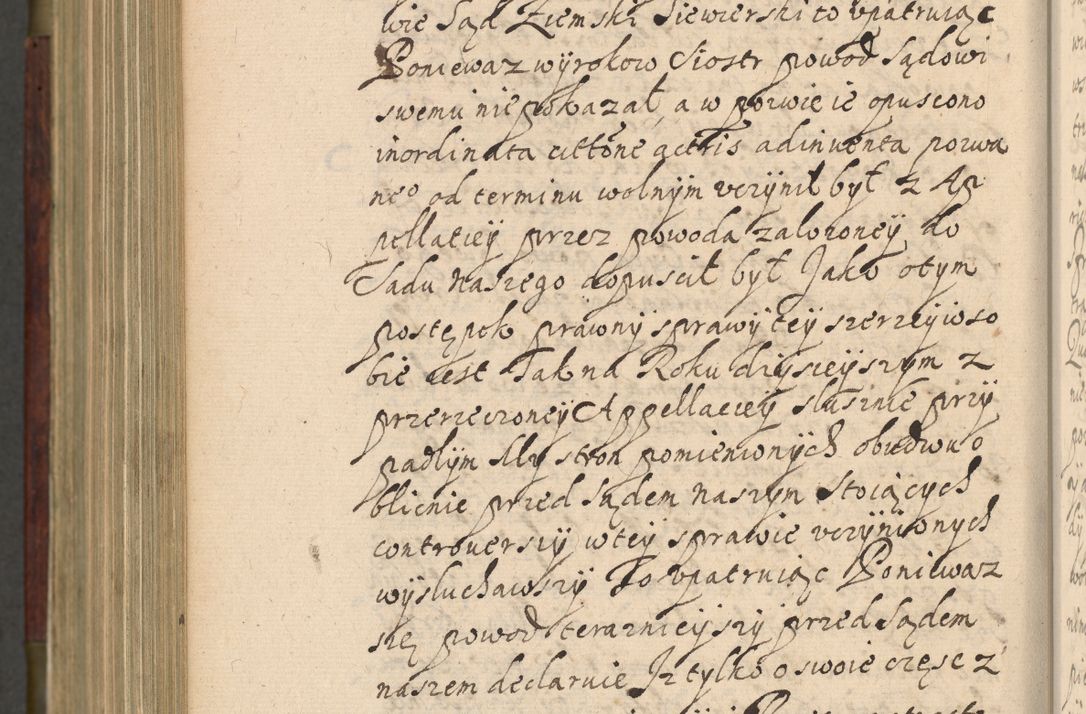 wie Sąd Ziemski Siewierski to vpatruiąc
Poniewaz wÿrokow Siostr powod Sądowi
swemu nie pokazał, a w pozwie ie opuscono
inordinata citt͠one actris adinuenta pozwa
ne͠o od terminu wolnÿm vczÿnił był z Ap
pellatieÿ przez powoda załozoneÿ do
Sadu Naszego dopuscił był Jako otym
postępok prawnÿ sprawÿ teÿ szerzeÿ w so
bie iest Tak na Roku dziÿsieÿszym z
przerzeczoneÿ Appellacieÿ słusznie przÿ
padłÿm Mÿ stron pomienionÿch obudwu o
blicnie przed Sądem naszym Stoiących
controuersiÿ w teÿ sprawie vczÿnionych
wÿsłuchawszÿ To vpatruiąc Poniewaz
się powod teraznieÿszÿ przed Sądem
naszem declaruie Jz tylko o swoie częsc z